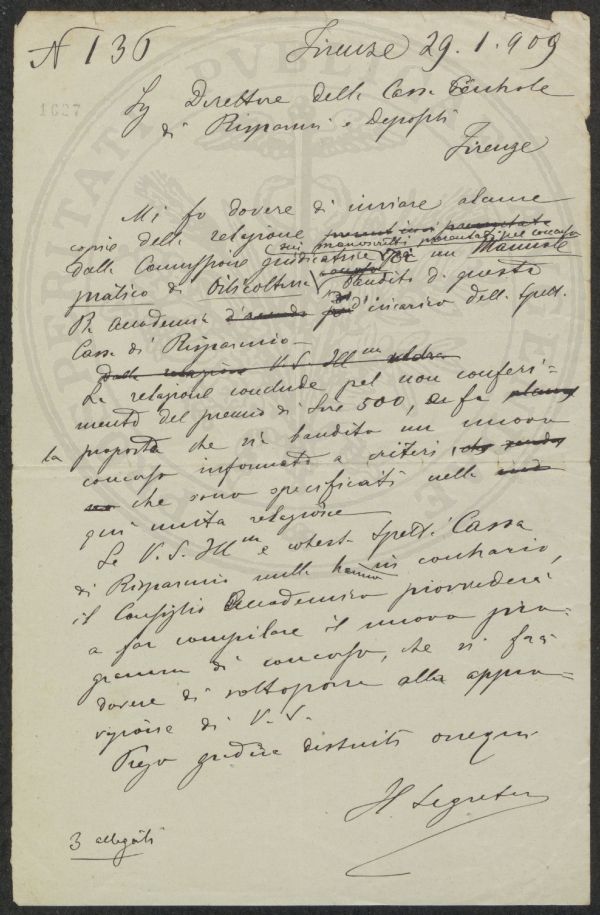 N 136 Firenze 29.1.909
1627
Sig Direttore della Cassa Centrale
di Risparmi e Depositi
Firenze
Mi fo dovere di inviare alcune
copie della relazione
sui manoscritti presentati pel concorso
dalla Commissione giudicatrice per un Manuale
pratico di Olivicoltura bandito da questa
concorso
R. Accademia d'incarico della Spett.
Cassa di Risparmio.
Dalla relazione V. S. Ill.ma vedrà
La relazione conclude pel non conferi=
mento del premio di Lire 500, e fa
la proposta che si bandita un nuovo
concorso informato a criteri
che sono specificati nella
qui unita relazione
Se V. S. Ill.ma e cotesta Spett. Cassa
di Risparmio nulla hanno in contrario,
il Consiglio Accademico provvederà
a far compilare il nuovo pro=
gramma di concorso, che si farà
dovere di sottoporre alla appro=
vazione di V. S.
Prego gradire distinti ossequi
Il Segretario
3 allegati